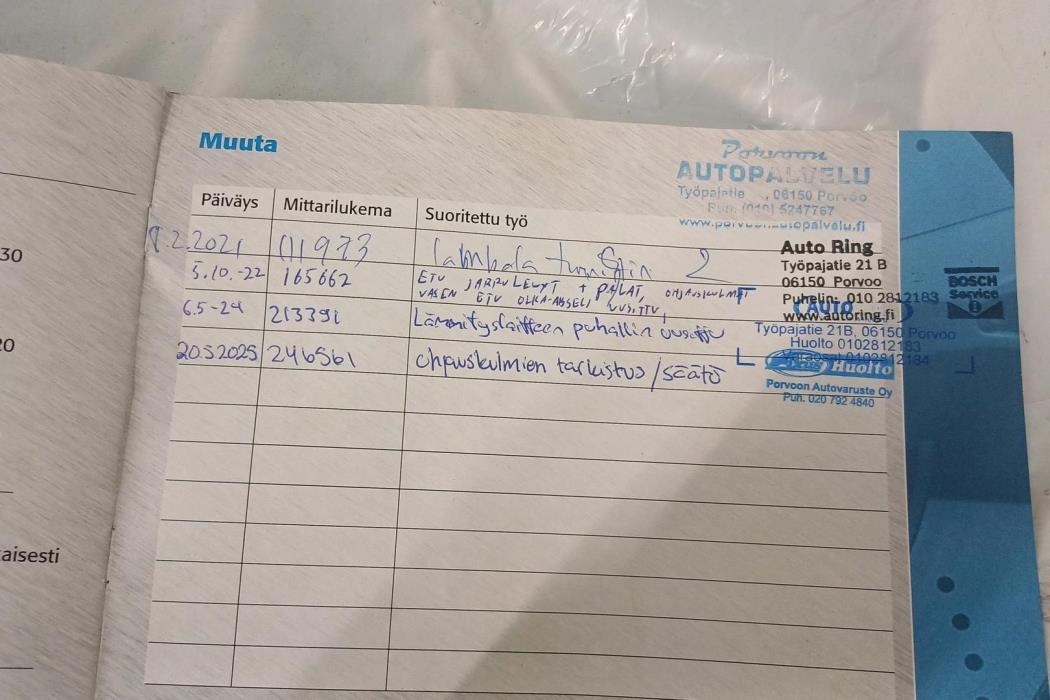 Muuta
Porvoon
AUTOPALVELU
Työpajatie , 06150 Porvoo
Puh. (019) 5247767
www.porvoonautopalvelu.fi
Päiväys Mittarilukema Suoritettu työ
.2.2021 111973 2
5.10.-22 165662 ETU JARRULEVYT + PALAT, OHJAUSKULMAT
VASEN ETU OLKA-AKSELI UUSITTU,
6.5-24 213391 Lämmityslaitteen puhallin uusittu
20.5.2025 246561 ohjauskulmien tarkistus/säätö
Auto Ring
Työpajatie 21 B
06150 Porvoo
Puhelin: 010 2812183
www.autoring.fi
BOSCH
Service
AUTO
Työpajatie 21B, 06150 Porvoo
Huolto 0102812183
0102812184
Huolto
Porvoon Autovaruste Oy
Puh. 020 792 4840
30
20
aisesti